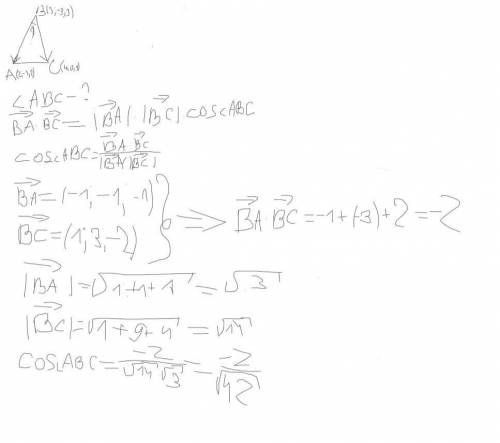 B(3;-3;3)
<ABC-?
BA·BC=|BA|·|BC|cos<ABC
cos<ABC=BA·BC/|BA||BC|
BA=(-1;-1;-1)
BC=(1;3;-2)
=> BA·BC=-1+(-3)+2=-2
|BA|=√1+1+1=√3
|BC|=√1+9+4=√14
cos∟ABC=-2/√14√3=-2/√42